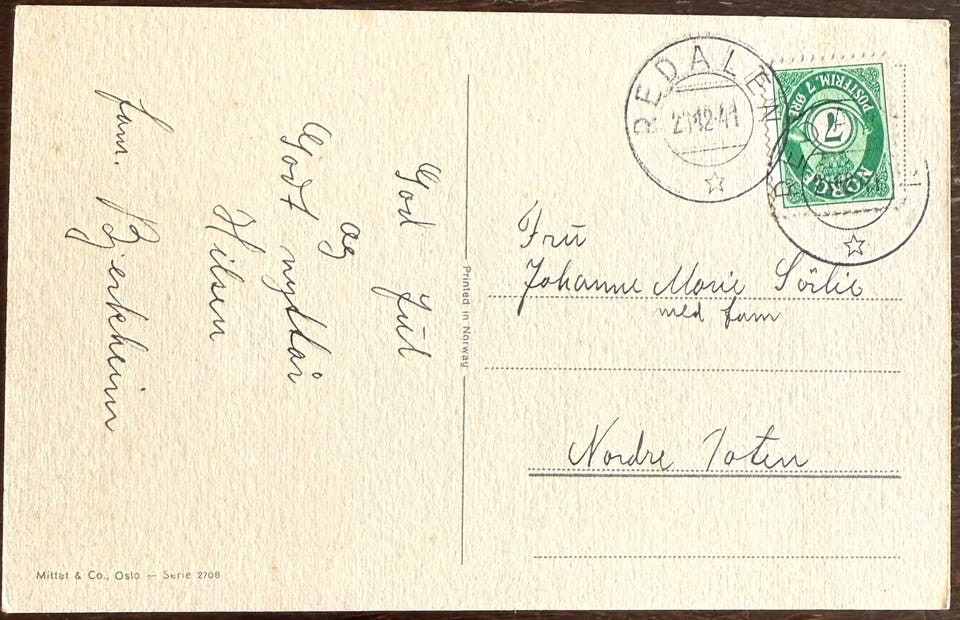 God Jul
og
Godt nyttår
Hilsen
fam. Bjerkheim
Printed in Norway
Mittet & Co., Oslo — Serie 2708
REDALEN
21.12.41
POSTFRIM. 7 ØRE
7
NORGE
Fru
Johanne Marie Sörlie
med fam
Nordre Toten